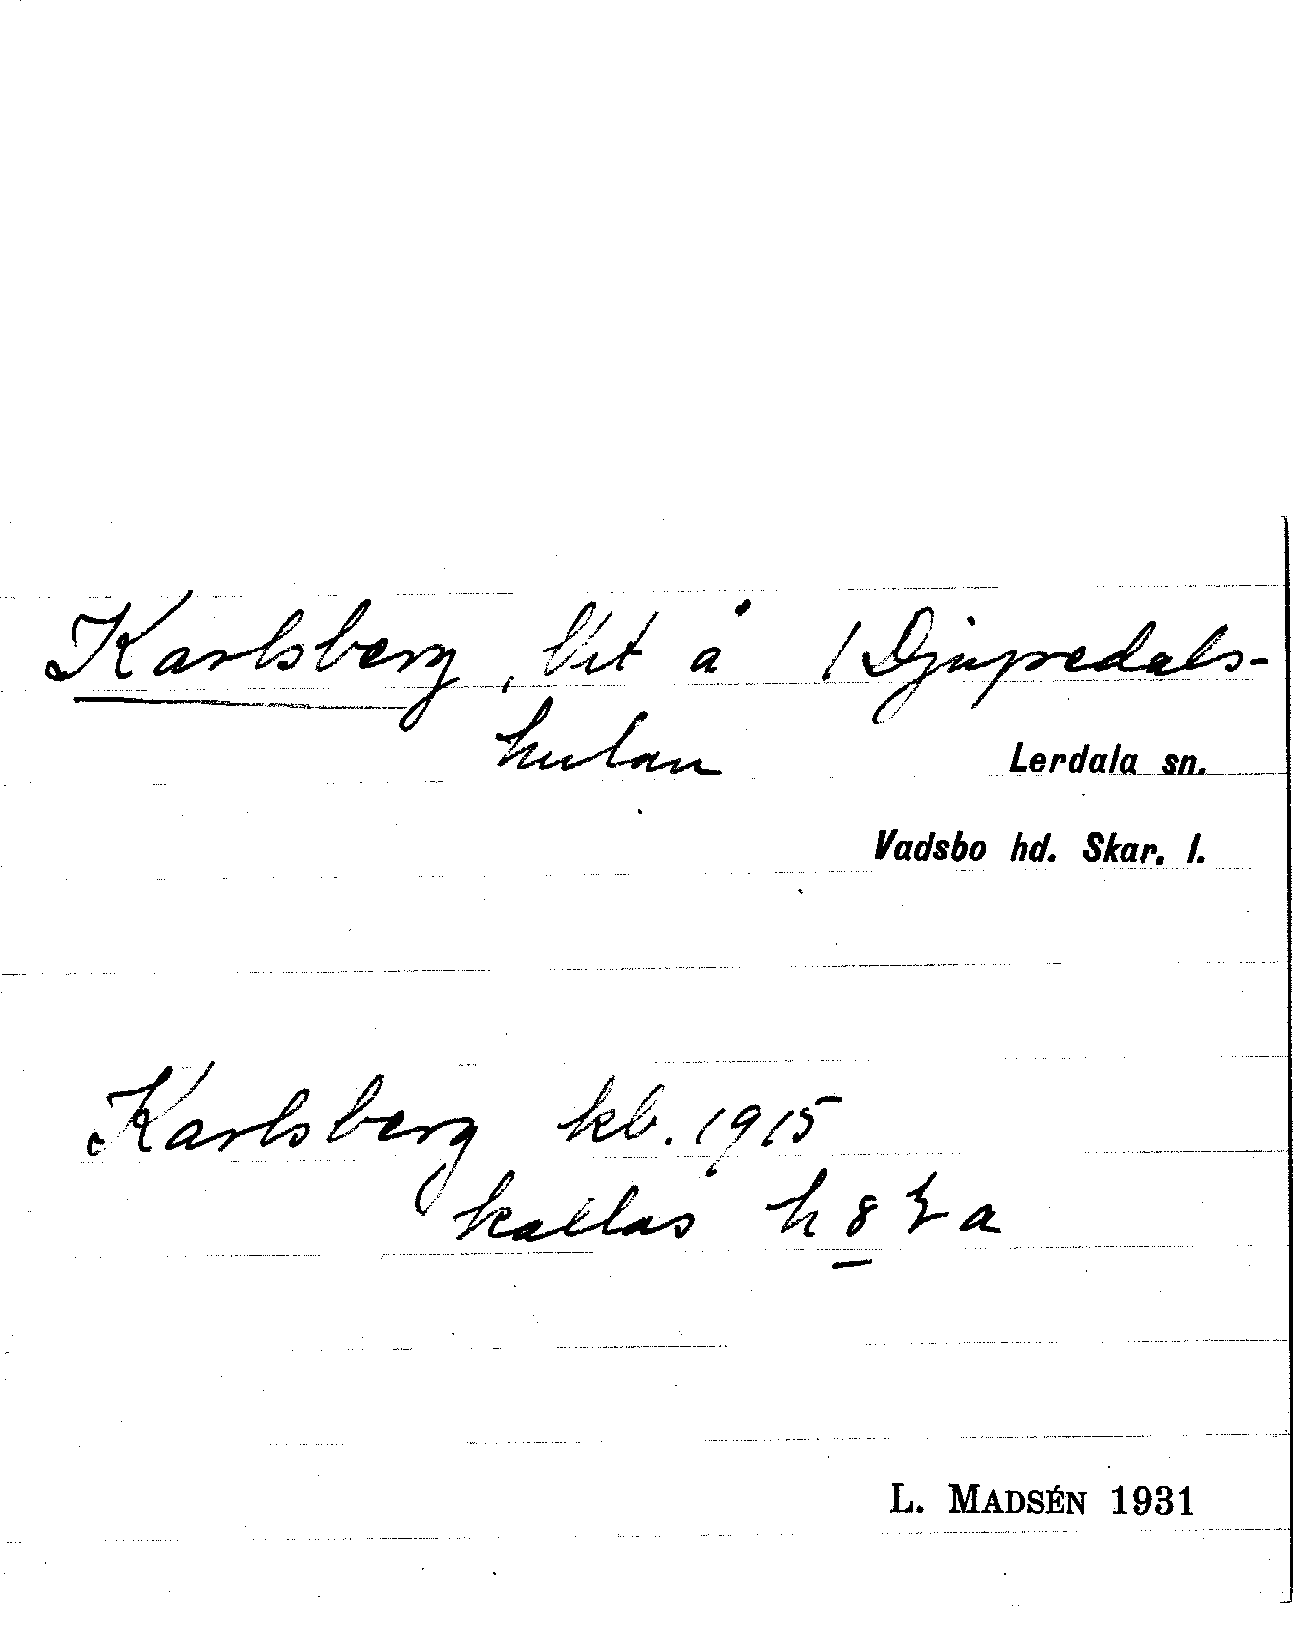 Karlsberg, lht å / Djupedals-
kulan
Lerdala sn.
Vadsbo hd. Skar. l.
Karlsberg kb. 1915
kallas
L. MADSÉN 1931